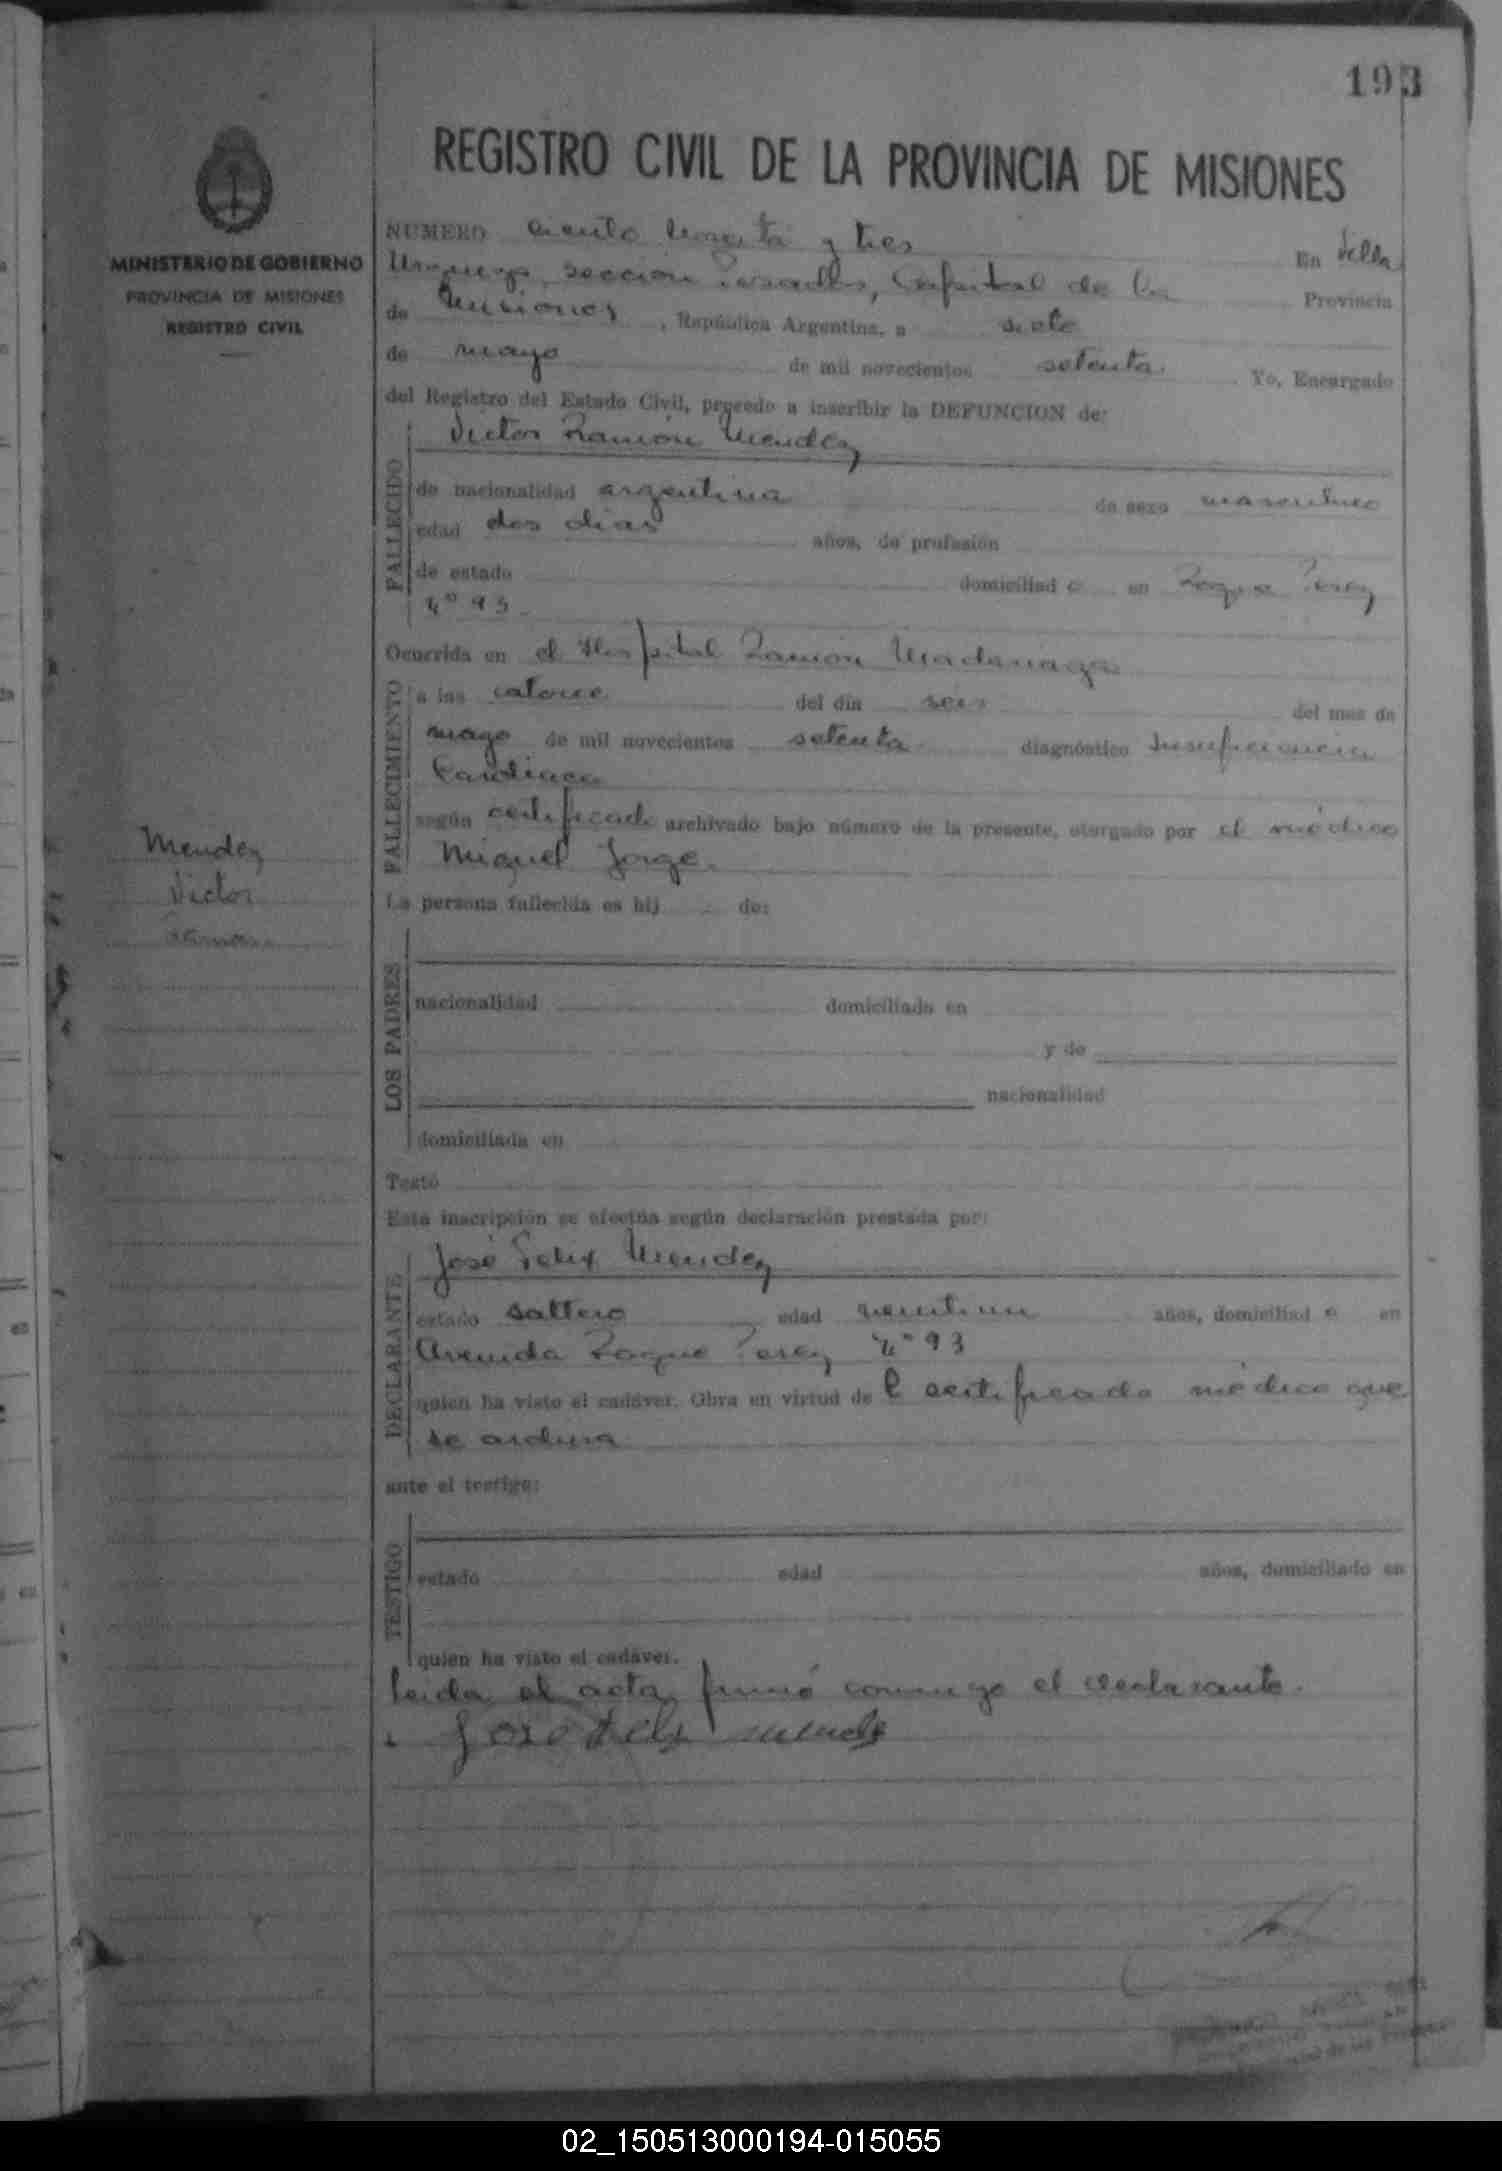 193
REGISTRO CIVIL DE LA PROVINCIA DE MISIONES
MINISTERIO DE GOBIERNO
PROVINCIA DE MISIONES
REGISTRO CIVIL
NUMERO ciento noventa y tres En Villa
Urquiza, sección Posadas, Capital de la Provincia
de Misiones, República Argentina, a siete
de mayo de mil novecientos setenta. Yo, Encargado
del Registro del Estado Civil, procedo a inscribir la DEFUNCION de:
Victor Ramón Mendez
FALLECIDO
de nacionalidad argentina de sexo masculino
edad dos dias años, de profesión
de estado domiciliad o en Roque Perez
Nº 93.
Ocurrida en el Hospital Ramón Madariaga
FALLECIMIENTO
a las catorce del día seis del mes de
mayo de mil novecientos setenta diagnóstico Insuficiencia
Cardiaca
según certificado archivado bajo número de la presente, otorgado por el médico
Miguel Jorge.
La persona fallecida es hij de:
LOS PADRES
nacionalidad domiciliado en
y de
nacionalidad
domiciliada en
Testó
Esta inscripción se efectúa según declaración prestada por:
José Felix Mendez
DECLARANTE
estado soltero edad veintiun años, domiciliad o en
Avenida Roque Perez Nº 93
quien ha visto el cadáver. Obra en virtud de l certificado médico que
se archiva
ante el testigo:
TESTIGO
estado edad años, domiciliado en
quien ha visto el cadáver.
Leida el acta, firmó conmigo el declarante.
Jose Felix Mendez
Mendez
Victor
Ramon
02_150513000194-015055